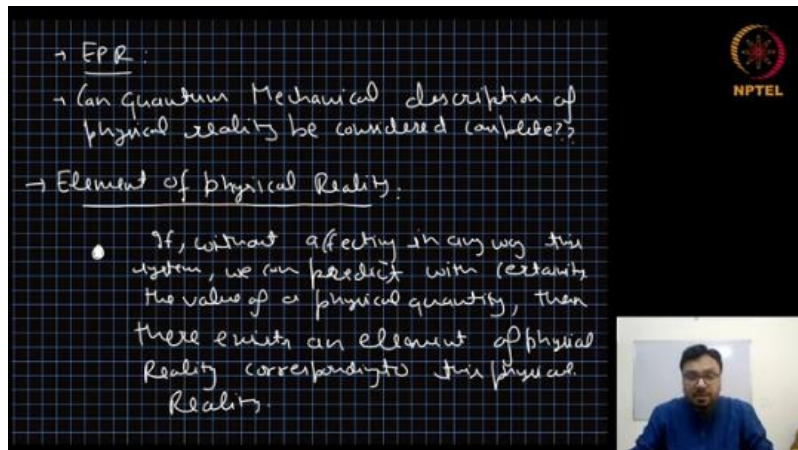 → EPR :
→ Can Quantum Mechanical description of
physical reality be considered complete??
→ Element of physical Reality:
If, without affecting in any way this
system, we can predict with certainity
the value of a physical quantity, then
there exists an element of physical
Reality corresponding to this physical
Reality.
NPTEL